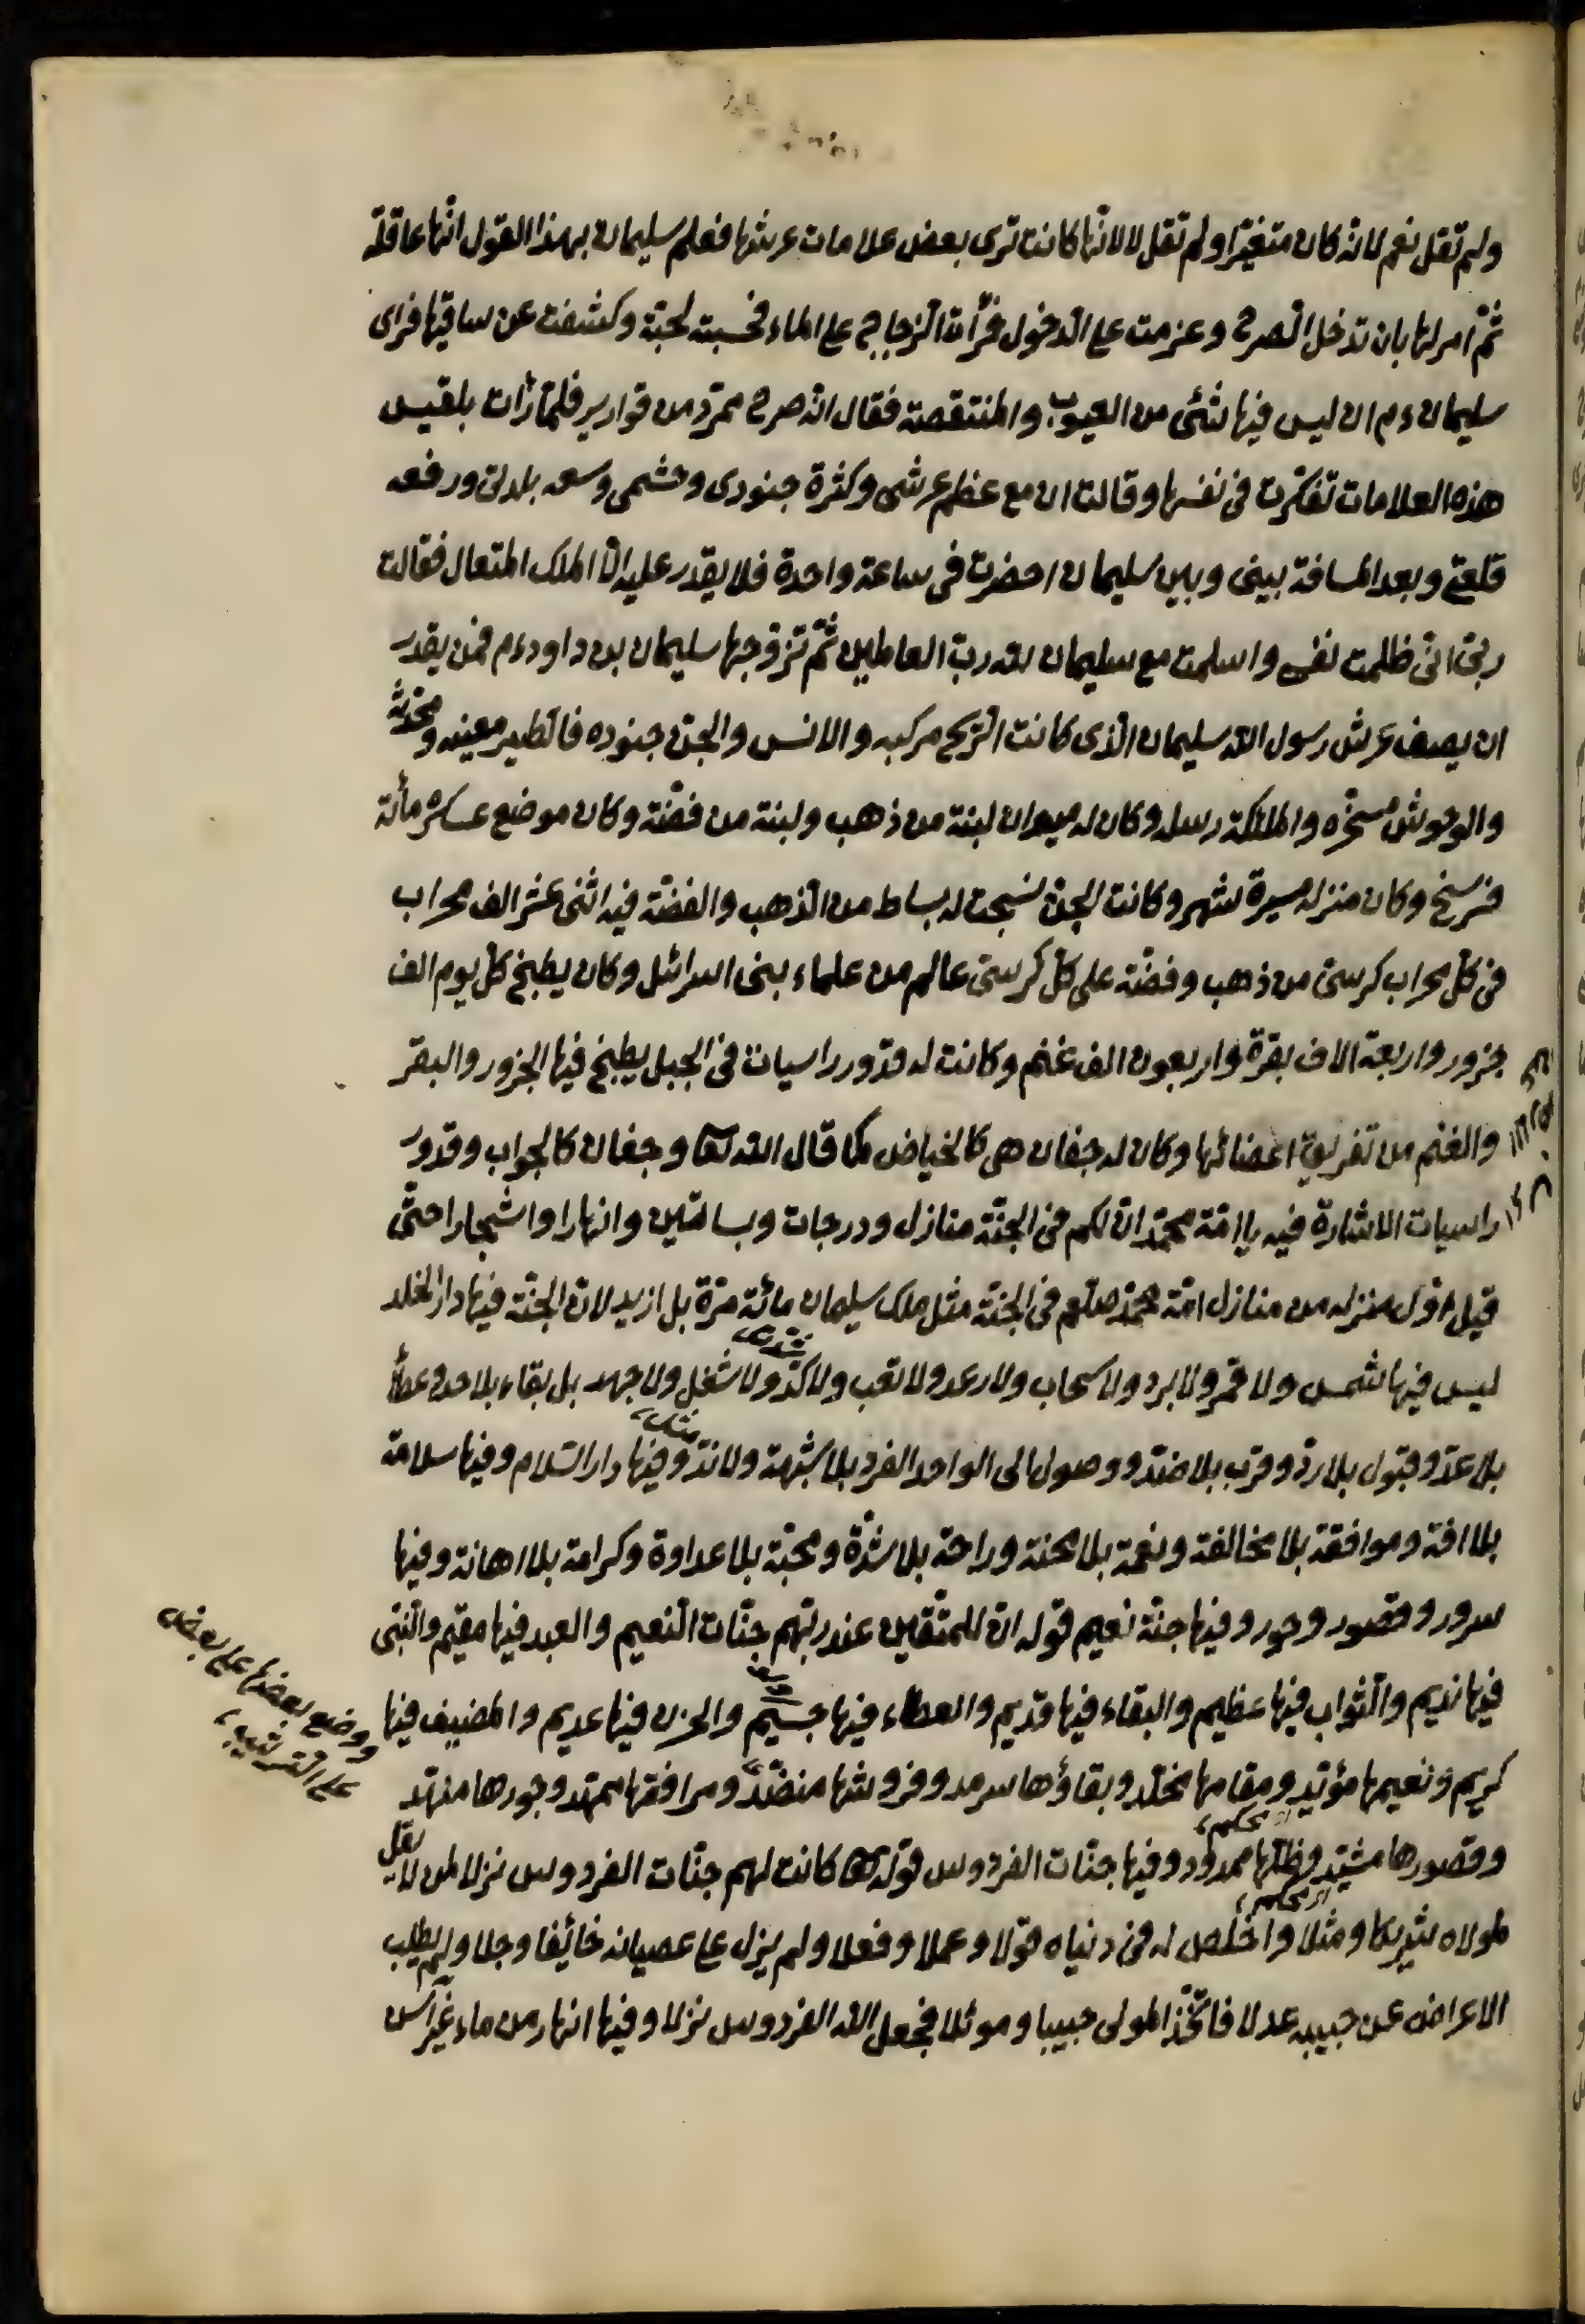 ولم تقل نعم لانه كان متغيّرا ولم تقل لا لانّها كانت ترى بعض علامات عرشها فعلم سليمان بهذا القول انّها عاقلة
ثمّ امر لها بان تدخل الصرح وعزمت على الدخول فرأت الزجاج على الماء فحسبته لجّة وكشفت عن ساقيها فراى
سليمان ءم ان ليس فيها شئ من العيوب والمنتقصة فقال انّه صرح ممرّد من قوارير فلمّا رأت بلقيس
هذه العلامات تفكّرت فى نفسها وقالت ان مع عظم عرشى وكثرة جنودى وحشمى وسعه بلدتى ورفعه
قلعتى وبعد المسافة بينى وبين سليمان احضرت فى ساعة واحدة فلا يقدر عليه الّا الملك المتعال فقالت
ربّى انّى ظلمت نفسى واسلمت مع سليمان لله ربّ العالمين ثمّ تزوجها سليمان بن داود ءم فمن يقدر
ان يصف عرش رسول الله سليمان الّذى كانت الرّيح مركبه والانس والجنّ جنوده فالطير معينه ومحدّثه
والوحوش مسخّره والملئكة رسله وكان له ميدان لبنة من ذهب ولبنة من فضّة وكان موضع عسكره مأئة
فرسخ وكان منزله مسيرة شهر وكانت الجنّ نسجت له بساط من الذهب والفضّة فيه اثنى عشر الف محراب
فى كلّ محراب كرسىّ من ذهب وفضّة على كلّ كرسىّ عالم من علماء بنى اسرائل وكان يطبخ كلّ يوم الف
جزور واربعة الاف بقرة واربعون الف غنم وكانت له قدّور راسيات فى الجبل يطبخ فيها الجزور والبقر
والغنم من تفريق اعضائها وكان له جفان هى كالحياض كما قال الله تعا وجفان كالجواب وقدور
راسيات الاشارة فيه ياامّة محمّد انّ لكم فى الجنّة منازل ودرجات وبساتين وانهارا واشجارا حتّى
قيل اوّل منزله من منازل امّة محمّد صلّعم فى الجنّة مثل ملك سليمان مائة مرّة بل ازيد لانّ الجنّة فيها دار الخلد
ليس فيها شمس ولا قمر ولا برد ولا سحاب ولا رعد ولا تعب ولا كدّ ولا شغل ولا جهد بل بقاء بلا حد وعطأ
بلا عدّ وقبول بلا ردّ وقرب بلا ضدّ ووصول الى الواحد الفرد بلا شبهة ولا ندّ وفيها دار السّلام وفيها سلامة
بلا افة وموافقة بلا مخالفة ونعمة بلا محنة وراحة بلا شدّة ومحبّة بلا عداوة وكرامة بلا اهانة وفيها
سرور وقصور وحور وفيها جنّة نعيم قوله انّ للمتّقين عند ربّهم جنّات النّعيم والعبد فيها مقيم والنّبى
فيها نديم والثواب فيها عظيم والبقاء فيها قديم والعطاء فيها جسيم والحزن فيها عديم والمضيف فيها
كريم ونعيمها مؤبّد ومقامها مخلّد وبقاؤها سرمد وفروشها منضّد ومرافقها ممهّد وحورها منهّد
وقصورها مشيّد وظلّها ممدود وفيها جنّات الفردوس قوله تعا كانت لهم جنّات الفردوس نزلا لمن لا يقل
لمولاه شريكا ومثلا واخلص له فى دنياه قولا وعملا وفعلا ولم يزل على عصيانه خائفا وجلا ولم يطلب
الاعراض عن حبيبه عدلا فاتّخذ المولى حبيبا وموئلا فجعل الله الفردوس نزلا وفيها انهار من ماء غير آسن
ووضع بعضها على بعض
على الترتيب